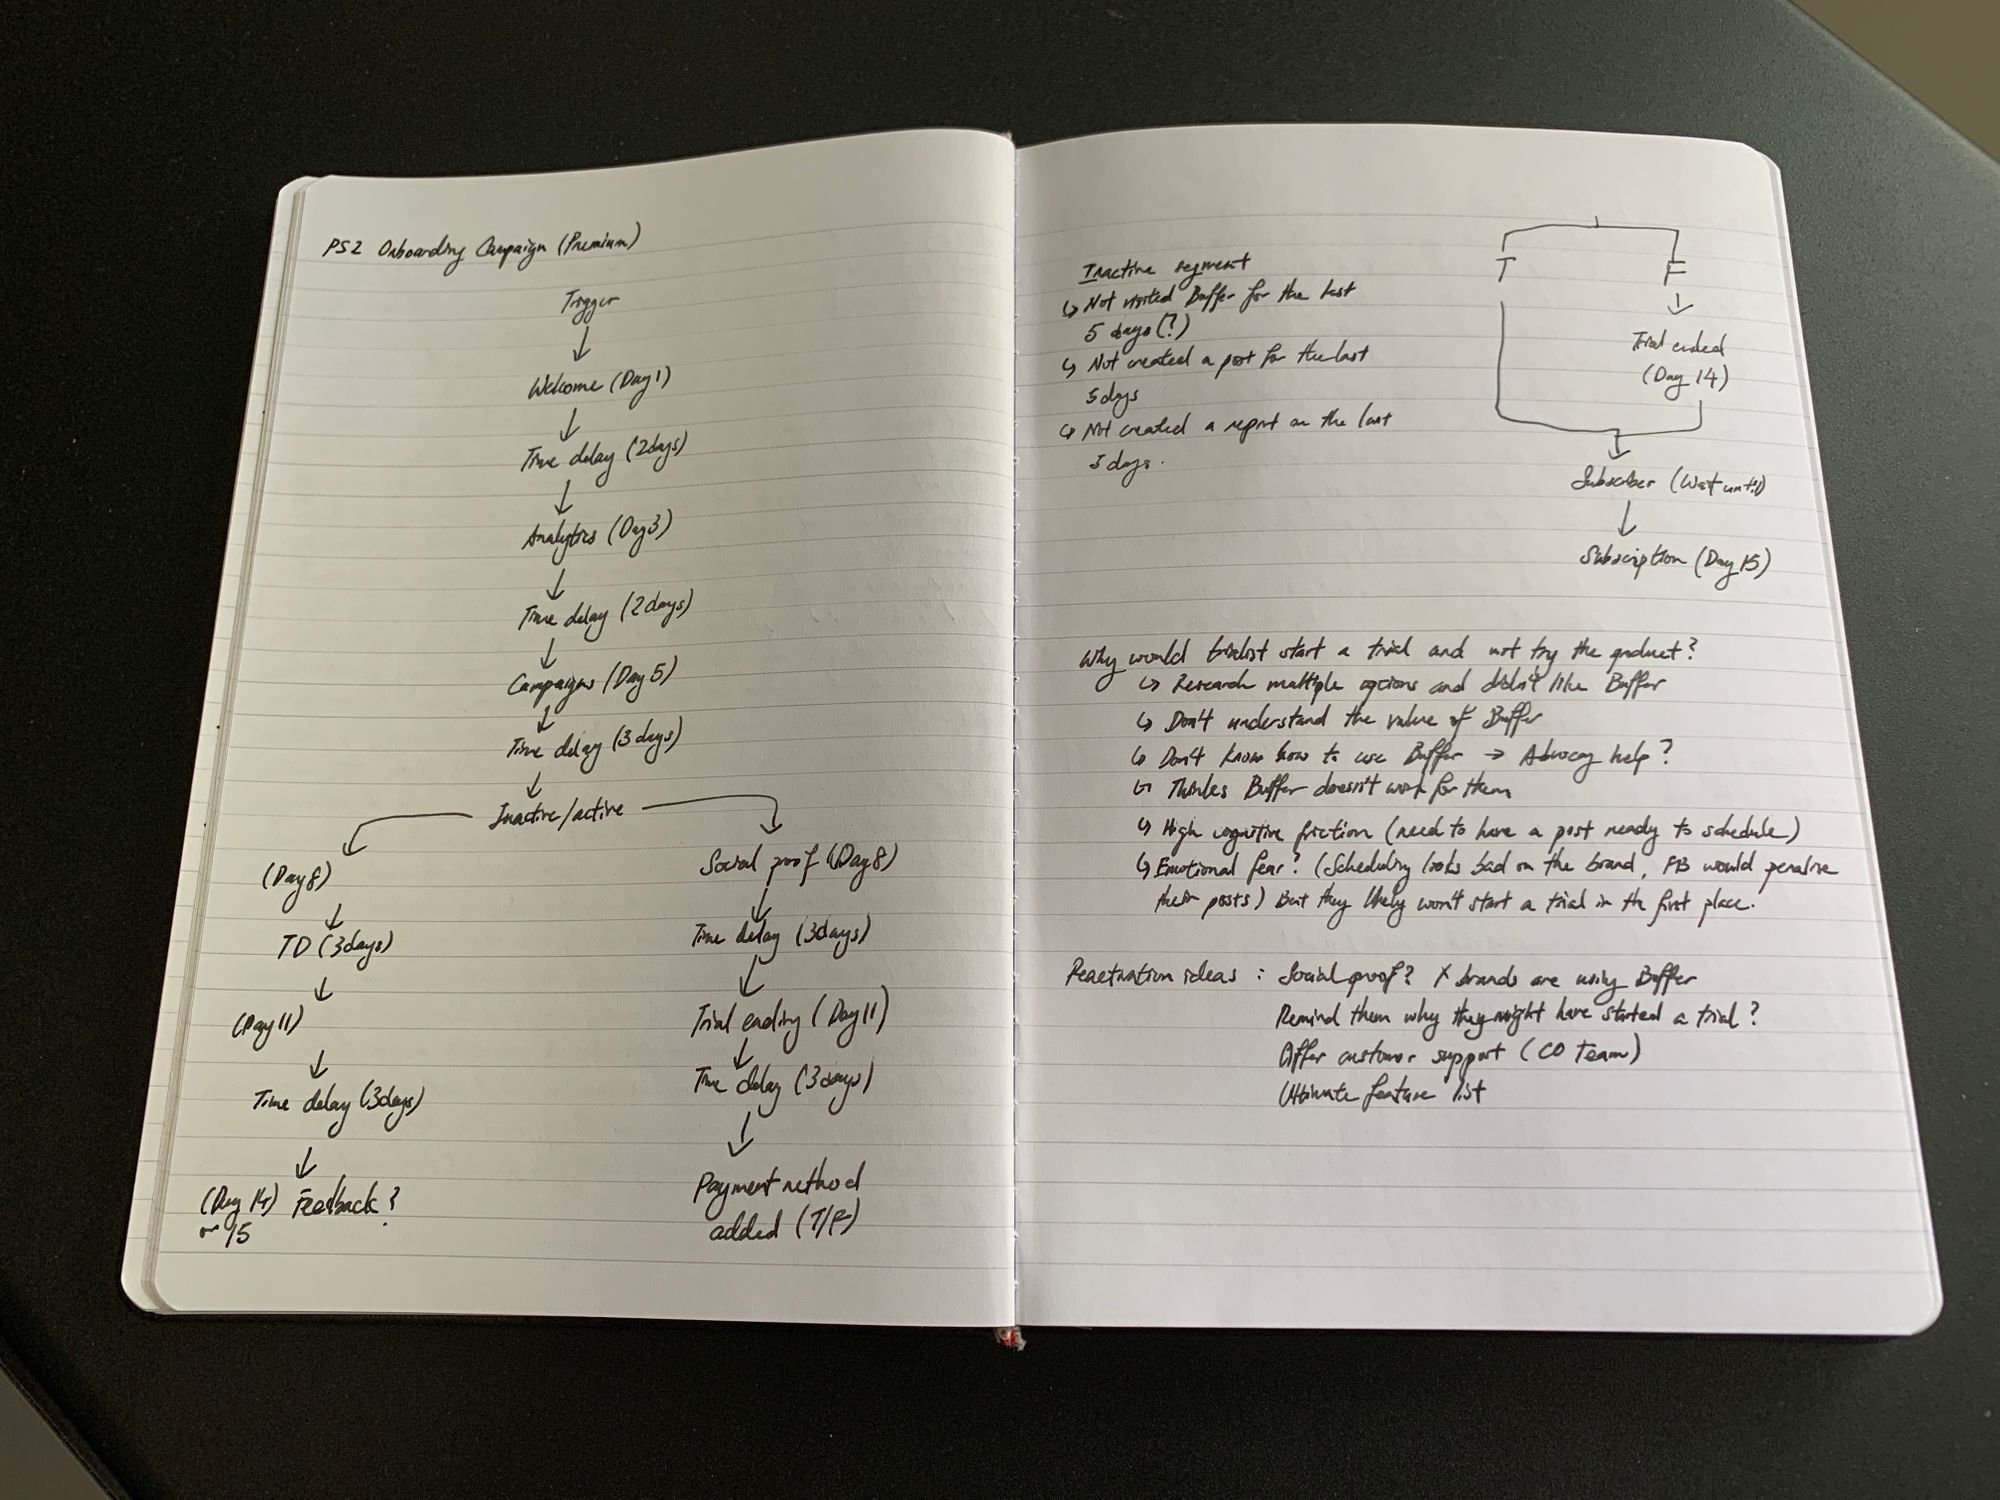 PS2 Onboarding Campaign (Premium)
Trigger
Welcome (Day 1)
Time delay (2days)
Analytics (Day 3)
Time delay (2days)
Campaigns (Day 5)
Time delay (3 days)
Inactive/active
(Day 8)
TD (3days)
(Day 11)
Time delay (3days)
(Day 14) Feedback?
or 15
Social proof (Day 8)
Time delay (3days)
Trial ending (Day 11)
Time delay (3days)
Payment method
added (T/F)
Inactive segment
↳ Not visited Buffer for the last
5 days (?)
↳ Not created a post for the last
5 days
↳ Not created a report on the last
5 days.
T F
Trial ended
(Day 14)
Subscriber (Wait until)
Subscription (Day 15)
Why would trialist start a trial and not try the product?
↳ Research multiple options and didn't like Buffer
↳ Don't understand the value of Buffer
↳ Don't know how to use Buffer → Advocacy help?
↳ Thinks Buffer doesn't work for them
↳ High cognitive friction (need to have a post ready to schedule)
↳ Emotional fear? (Scheduling looks bad on the brand, FB would penalise
their posts) But they likely won't start a trial in the first place.
Reactivation ideas : Social proof? X brands are using Buffer
Remind them why they might have started a trial?
Offer customer support (CO Team)
Ultimate feature list